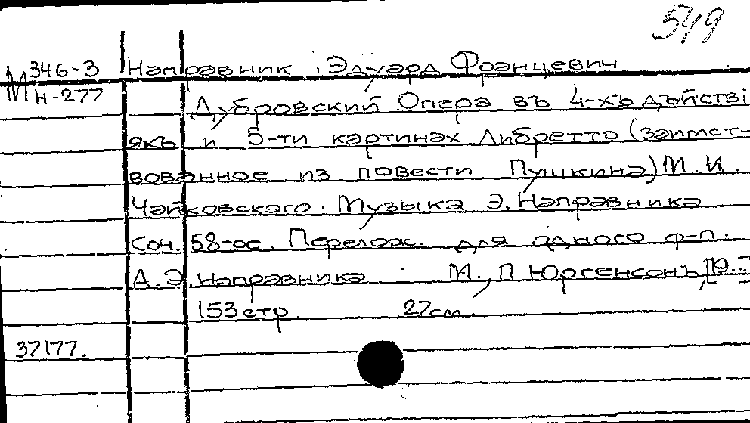 549
М 346-3 Направник, Эдуард Францевич
Н-277
Дубровский Опера въ 4-хъ дъйстві
якъ и 5-ти картинах Либретто (заимст-
вованное из повести Пушкина) М. И.
Чайковского. Музыка Э. Направника
Соч. 58-ое. Перелож. для одного ф-п.
А. Э. Направника М., П Юргенсонъ, [19..
153 стр. 27 см.
37177.